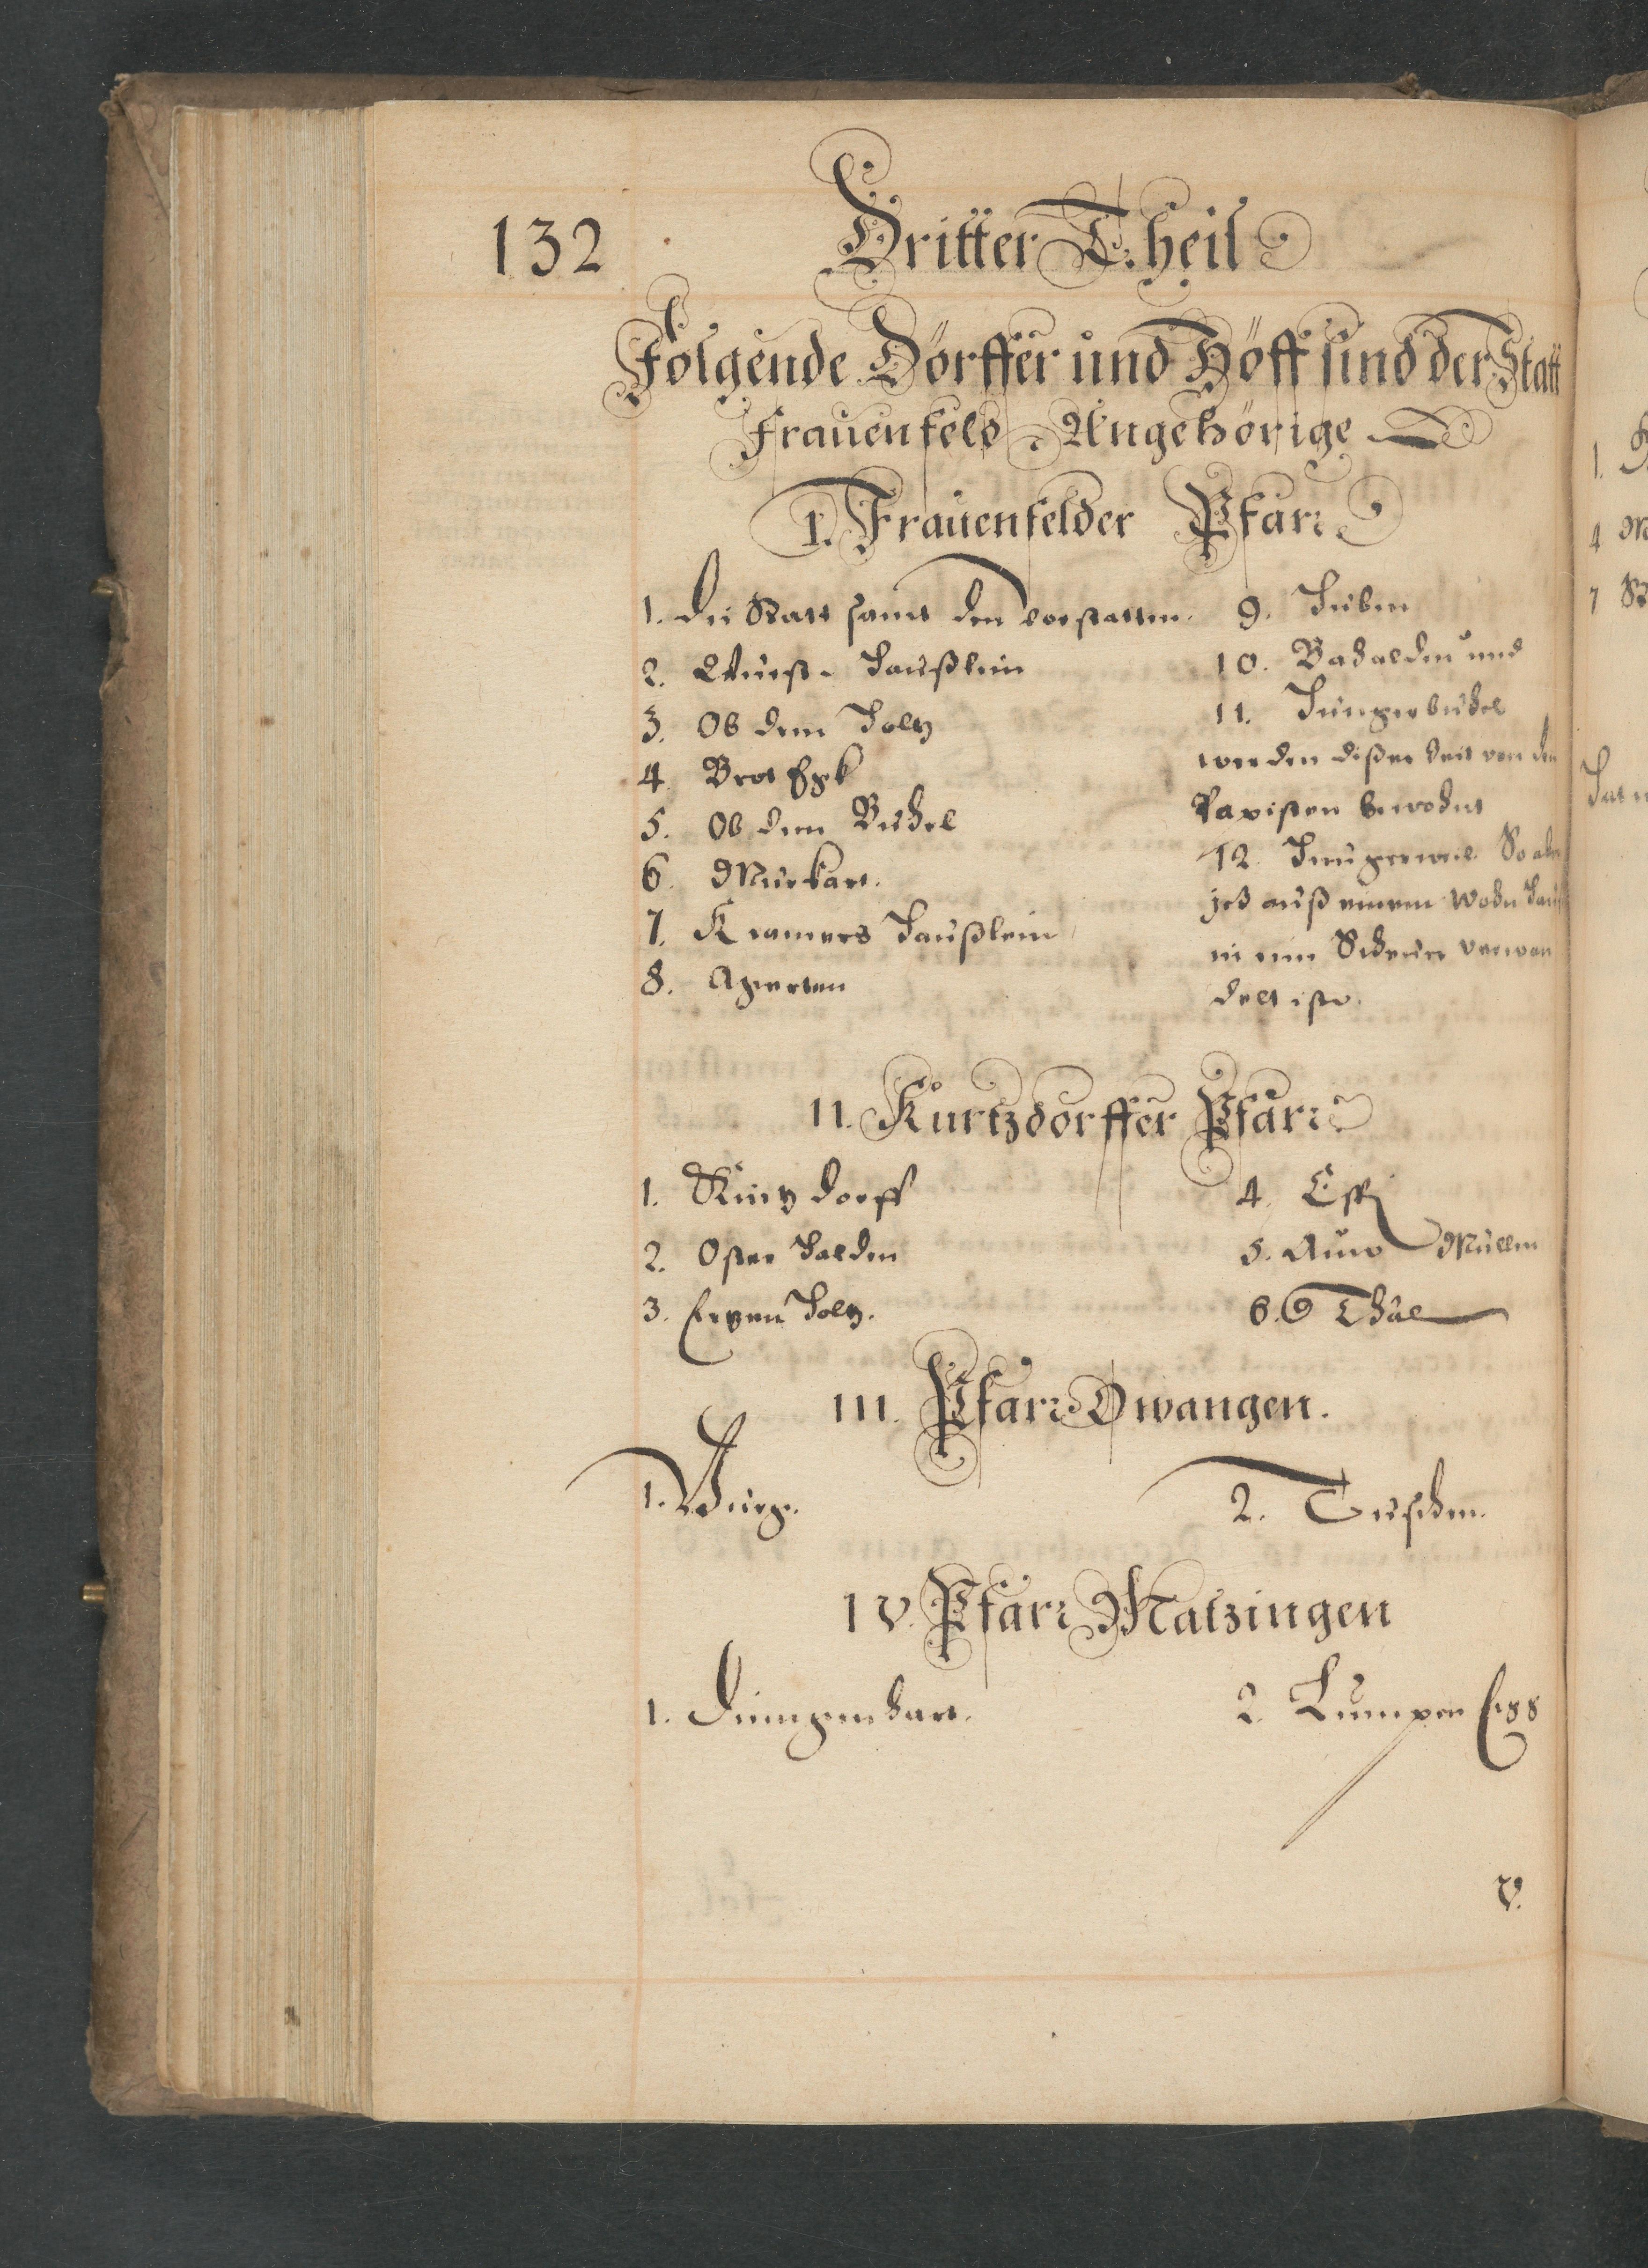 132
Dritter Theil
Folgende Dörffer und Höff sind der Statt
Frauenfeld Angehörige
I. Frauenfelder Pfarr
1. Die Statt samt den vorstatten.
2. Haüßlein
3. Ob dem Holtz
4. Brot Egk
5. Ob dem Büchel
6. Murkart.
7. Kramers Haüßlein
8. Agerten
9. Huben
10. Bahalden und
11. Hungerbühel
werden dißer Zeit von den
Papisten bewohnt
12. Hungerweil So aber
jetz auß einem Wohn Hauß
in ein Scheüer verwan
delt ist.
II. Kurtzdorffer Pfarr
1. Kurtzdorff
2. Oster Halden
3. Erzen Holtz.
4. Espi
5. Auw Müllen
6. Thal
III. Pfarr Dwangen.
1. Burg.
2. Tuschen.
IV. Pfarr Matzingen
1. Dingenhart.
2.
V.